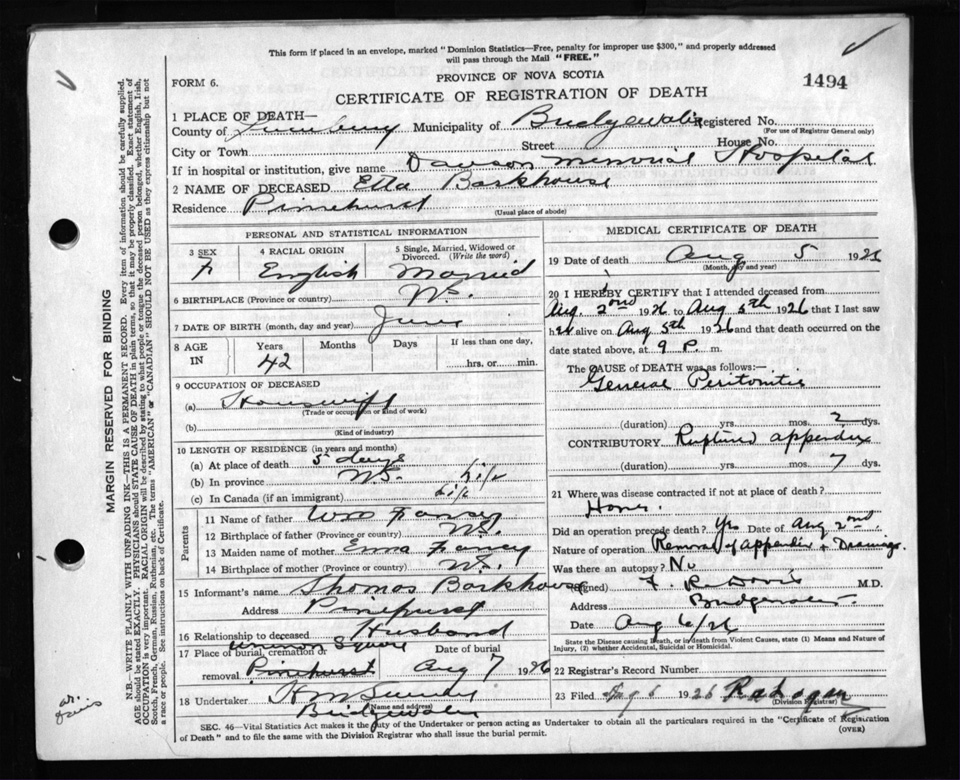 This form if placed in an envelope, marked "Dominion Statistics—Free, penalty for improper use $300," and properly addressed
will pass through the Mail "FREE."
PROVINCE OF NOVA SCOTIA
FORM 6.
1494
CERTIFICATE OF REGISTRATION OF DEATH
1 PLACE OF DEATH—
County of Lunenburg Municipality of Bridgewater Registered No.
(For use of Registrar General only)
City or Town Street House No.
If in hospital or institution, give name Dawson Memorial Hospital
2 NAME OF DECEASED Etta Barkhouse
Residence Pinehurst
(Usual place of abode)
PERSONAL AND STATISTICAL INFORMATION
3 SEX 4 RACIAL ORIGIN 5 Single, Married, Widowed or Divorced. (Write the word)
F English Married
6 BIRTHPLACE (Province or country) N.S.
7 DATE OF BIRTH (month, day and year) June
8 AGE IN Years Months Days If less than one day,
42 hrs. or min.
9 OCCUPATION OF DECEASED
(a) Housewife
(Trade or occupation or kind of work)
(b)
(Kind of industry)
10 LENGTH OF RESIDENCE (in years and months)
(a) At place of death 5 days
(b) In province N.S. life
(c) In Canada (if an immigrant) life
Parents
11 Name of father Wm
12 Birthplace of father (Province or country) N.S.
13 Maiden name of mother
14 Birthplace of mother (Province or country) N.S.
15 Informant's name Thomas Barkhouse
Address Pinehurst
16 Relationship to deceased Husband
17 Place of burial, cremation or removal Square Pinehurst Date of burial Aug 7 1926
18 Undertaker H M
(Name and address)
Bridgewater
MEDICAL CERTIFICATE OF DEATH
19 Date of death Aug 5 1926
(Month, day and year)
20 I HEREBY CERTIFY that I attended deceased from
Aug. 2nd 1926 to Aug 5th 1926 that I last saw
her alive on Aug 5th 1926 and that death occurred on the
date stated above, at 9 P. m.
The CAUSE OF DEATH was as follows:—
General Peritonitis
(duration) yrs. mos. dys.
CONTRIBUTORY Ruptured appendix
(duration) yrs. mos. 7 dys.
21 Where was disease contracted if not at place of death?
Home.
Did an operation precede death? Yes Date of Aug 2nd
Nature of operation Removal of Appendix + Drainage.
Was there an autopsy? No
(Signed) F. R. Davis M.D.
Address Bridgewater
Date Aug 6/26
State the Disease causing Death, or in death from Violent Causes, state (1) Means and Nature of
Injury, (2) whether Accidental, Suicidal or Homicidal.
22 Registrar's Record Number
23 Filed Aug 6 1926
(Division Registrar)
SEC. 46—Vital Statistics Act makes it the duty of the Undertaker or person acting as Undertaker to obtain all the particulars required in the "Certificate of Registration
of Death" and to file the same with the Division Registrar who shall issue the burial permit.
(OVER)
MARGIN RESERVED FOR BINDING
N.B.—WRITE PLAINLY WITH UNFADING INK—THIS IS A PERMANENT RECORD. Every item of information should be carefully supplied.
AGE should be stated EXACTLY. PHYSICIANS should STATE CAUSE OF DEATH in plain terms, so that it may be properly classified. Exact statement of
OCCUPATION is very important. RACIAL ORIGIN will be described by stating to what people or tongue the deceased person belonged, whether English, Irish,
Scotch, French, German, Russian, Ruthenian, etc. The terms "AMERICAN" or "CANADIAN" SHOULD NOT BE USED as they express citizenship but not
a race or people. See instructions on back of Certificate.